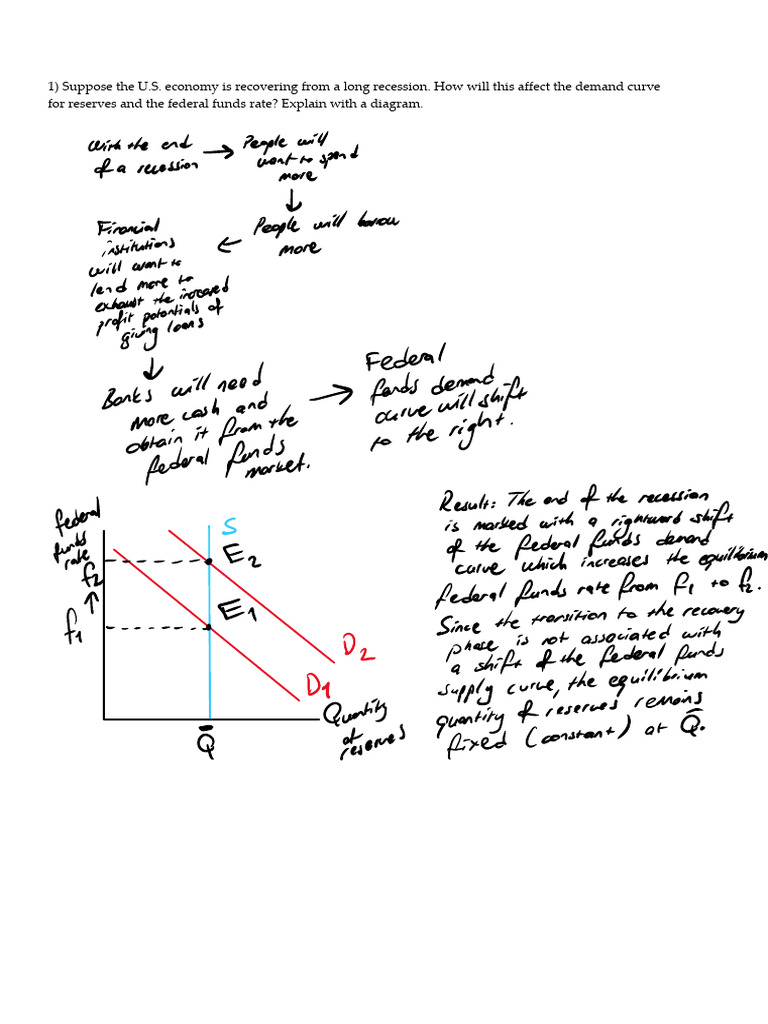 1) Suppose the U.S. economy is recovering from a long recession. How will this affect the demand curve
for reserves and the federal funds rate? Explain with a diagram.
With the end
of a recession
→
People will
want to spend
more
↓
People will borrow
more
←
Financial
institutions
will want to
lend more to
exhaust the increased
profit potentials of
giving loans
↓
Banks will need
more cash and
obtain it from the
federal funds
market.
→
Federal
funds demand
curve will shift
to the right.
federal
funds
rate
f2
↑
f1
S
E2
E1
D2
D1
Quantity
of
reserves
Q̄
Result: The end of the recession
is marked with a rightward shift
of the federal funds demand
curve which increases the equilibrium
federal funds rate from f1 to f2.
Since the transition to the recovery
phase is not associated with
a shift of the federal funds
supply curve, the equilibrium
quantity of reserves remains
fixed (constant) at Q̄.